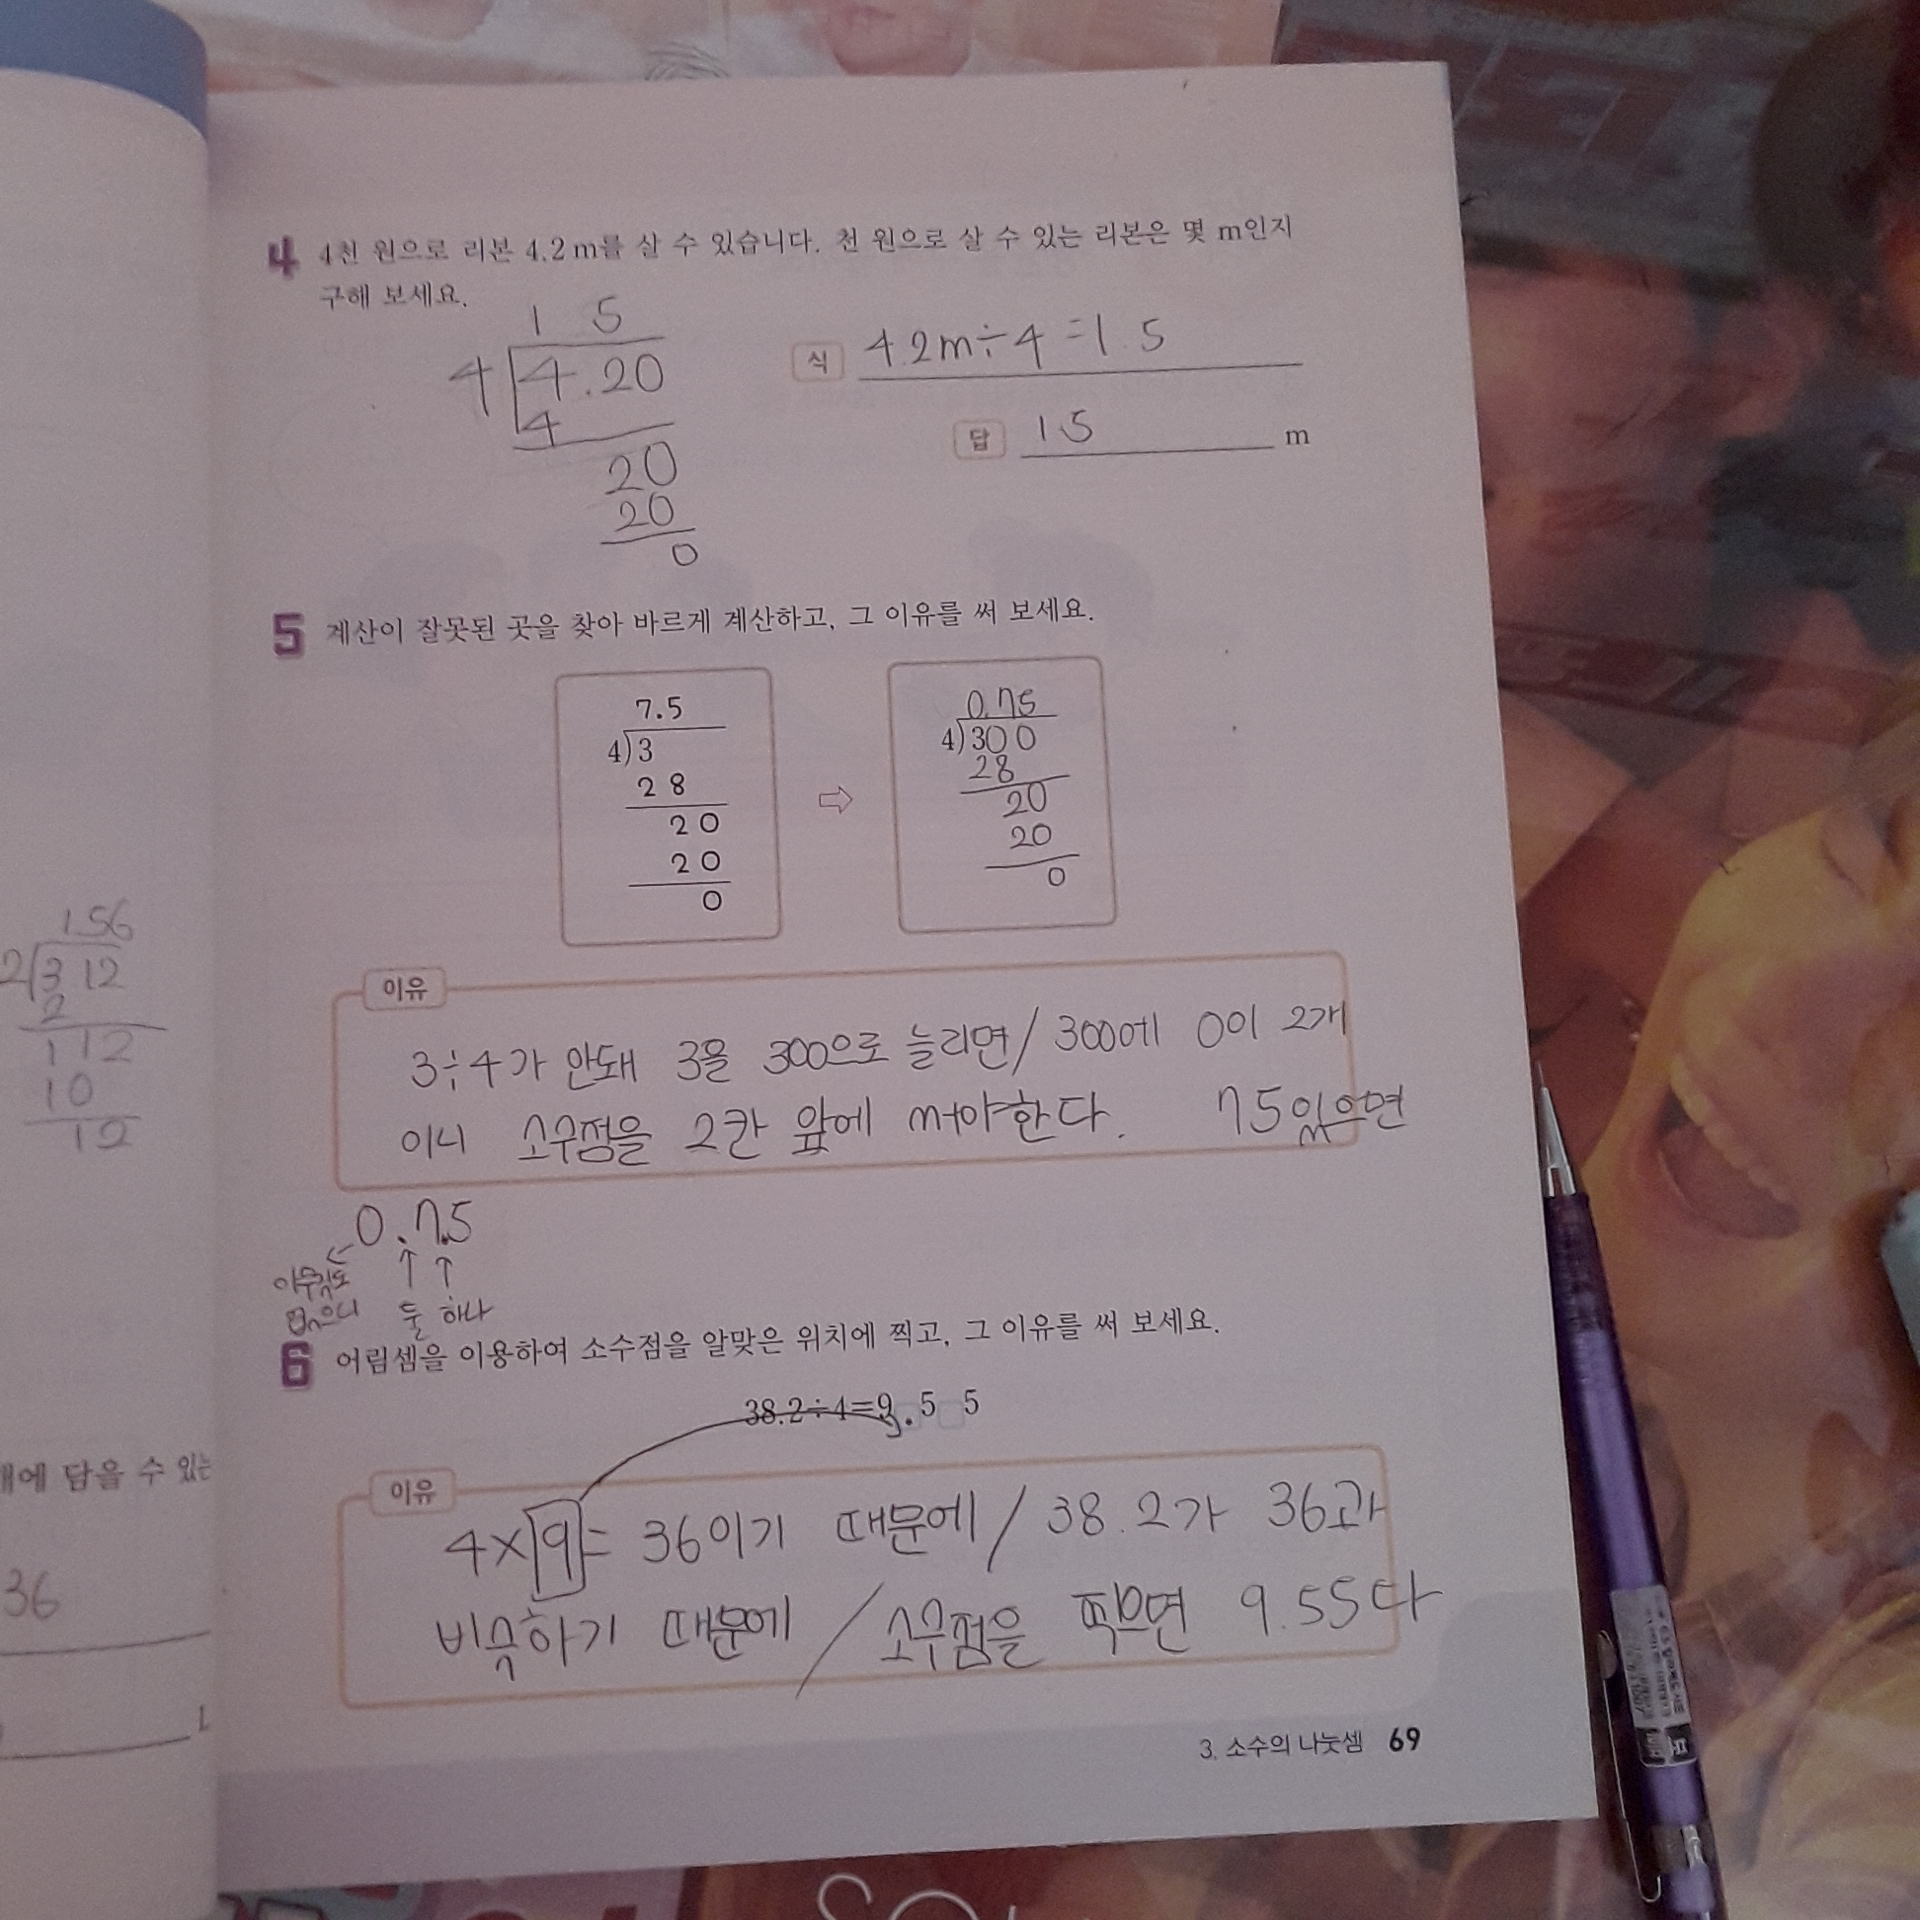 4 4천 원으로 리본 4.2 m를 살 수 있습니다. 천 원으로 살 수 있는 리본은 몇 m인지
구해 보세요.
1 5
4 4.20
4
20
20
0
식 4.2m÷4=1.5
답 1.5 m
5 계산이 잘못된 곳을 찾아 바르게 계산하고, 그 이유를 써 보세요.
7.5
4)3
2 8
2 0
2 0
0
⇨
0.75
4)300
28
20
20
0
이유
3÷4가 안돼 3을 300으로 늘리면/ 300에 0이 2개
이니 소수점을 2칸 앞에 써야한다. 75있으면
0.7.5
← ↑ ↑
아무것도
없으니 둘 하나
6 어림셈을 이용하여 소수점을 알맞은 위치에 찍고, 그 이유를 써 보세요.
38.2÷4=9.5 5
이유
4×9= 36이기 때문에/ 38.2가 36과
비슷하기 때문에/ 소수점을 찍으면 9.55다
3. 소수의 나눗셈 69
156
2)312
2
112
10
12
에 담을 수 있는
36
L